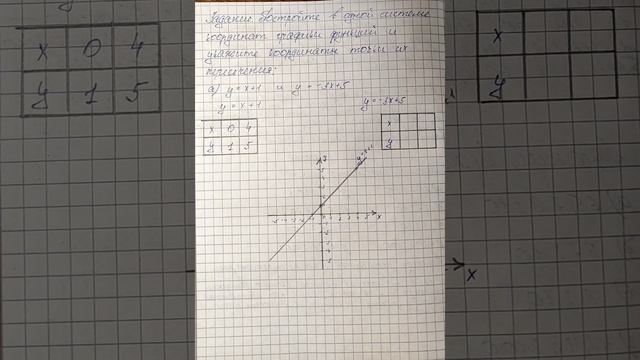 Задание: Постройте в одной системе
координат графики функций и
укажите координаты точки их
пересечения:
а) y = x+1 и y = -3x+5
y = x+1 y = -3x+5
x 0 4
y 1 5
x
y
y
x
y = x+1
x 0 4
y 1 5
x
y
x